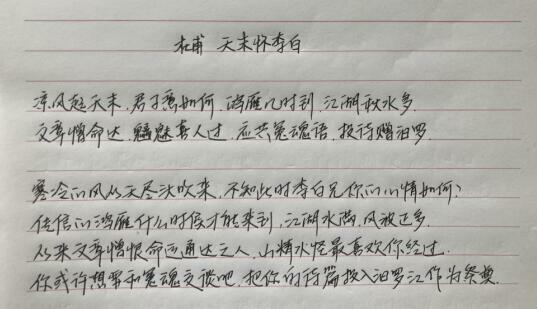 杜甫 天末怀李白
凉风起天末,君子意如何.鸿雁几时到,江湖秋水多.
文章憎命达,魑魅喜人过.应共冤魂语,投诗赠汨罗.
寒冷的风从天尽头吹来,不知此时李白兄你的心情如何?
传信的鸿雁什么时候才能来到,江湖水满,风波正多.
从来文章憎恨命运通达之人,山精水怪最喜欢你经过.
你或许想要和冤魂交谈吧,把你的诗篇投入汨罗江作为祭奠.